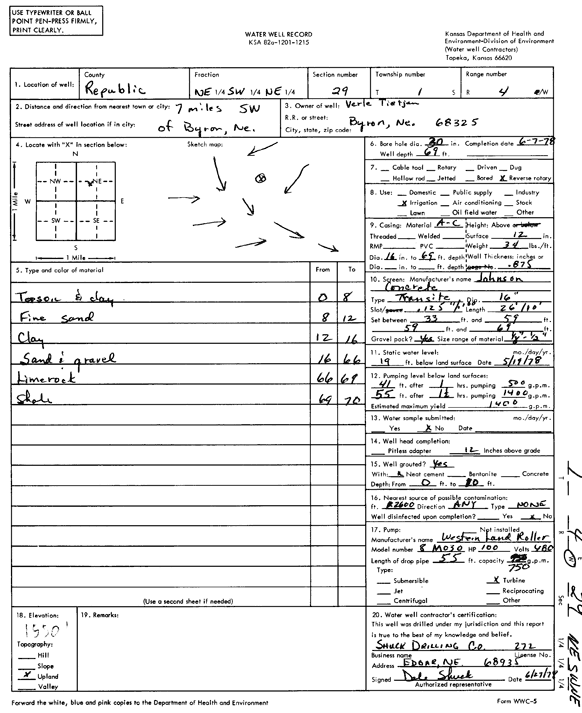 USE TYPEWRITER OR BALL
POINT PEN-PRESS FIRMLY,
PRINT CLEARLY.
WATER WELL RECORD
KSA 82a-1201-1215
Kansas Department of Health and
Environment-Division of Environment
(Water well Contractors)
Topeka, Kansas 66620
1. Location of well:
County
Republic
Fraction
NE 1/4 SW 1/4 NE 1/4
Section number
29
Township number
T 1 S
Range number
R 4 E/W
2. Distance and direction from nearest town or city: 7 miles SW
Street address of well location if in city: of Byron, Ne.
3. Owner of well: Verle Tietjen
R.R. or street:
City, state, zip code: Byron, Ne. 68325
4. Locate with "X" in section below:
N
NW NE
W E
SW SE
S
1 Mile
1 Mile
Sketch map:
5. Type and color of material From To
Topsoil & clay 0 8
Fine sand 8 12
Clay 12 16
Sand & gravel 16 66
Limerock 66 69
Shale 69 70
(Use a second sheet if needed)
6. Bore hole dia. 30 in. Completion date 6-7-78
Well depth 69 ft.
7. Cable tool Rotary Driven Dug
Hollow rod Jetted Bored X Reverse rotary
8. Use: Domestic Public supply Industry
X Irrigation Air conditioning Stock
Lawn Oil field water Other
9. Casing: Material A-C Height: Above or below
Threaded Welded Surface 12 in.
RMP PVC Weight 34 lbs./ft.
Dia. 16 in. to 69 ft. depth Wall Thickness: inches or
Dia. in. to ft. depth gage No. .875
10. Screen: Manufacturer's name Johnson
Concrete
Type Transite Dia. 16"
Slot/gauze .125 Length 26'/10'
Set between 33 ft. and 59 ft.
59 ft. and 69 ft.
Gravel pack? Yes Size range of material
11. Static water level: mo./day/yr.
19 ft. below land surface Date 5/19/78
12. Pumping level below land surfaces:
41 ft. after 1 hrs. pumping 500 g.p.m.
55 ft. after 1½ hrs. pumping 1400 g.p.m.
Estimated maximum yield 1400 g.p.m.
13. Water sample submitted: mo./day/yr.
Yes X No Date
14. Well head completion:
Pitless adapter 12 Inches above grade
15. Well grouted? Yes
With: X Neat cement Bentonite Concrete
Depth: From 0 ft. to 20 ft.
16. Nearest source of possible contamination:
ft. Direction ANY Type NONE
Well disinfected upon completion? Yes X No
17. Pump: Not installed
Manufacturer's name Western Land Roller
Model number 8 M030 HP 100 Volts 480
Length of drop pipe 55 ft. capacity g.p.m.
750
Type:
Submersible X Turbine
Jet Reciprocating
Centrifugal Other
18. Elevation:
Topography:
Hill
Slope
X Upland
Valley
19. Remarks:
20. Water well contractor's certification:
This well was drilled under my jurisdiction and this report
is true to the best of my knowledge and belief.
SHUCK DRILLING CO. 272
Business name License No.
Address EDGAR, NE. 68935
Signed Dale Shuck Date 6/27/78
Authorized representative
Forward the white, blue and pink copies to the Department of Health and Environment
Form WWC-5
T 1 R 4 E W Sec 29 1/4 1/4 1/4 NE SW NE